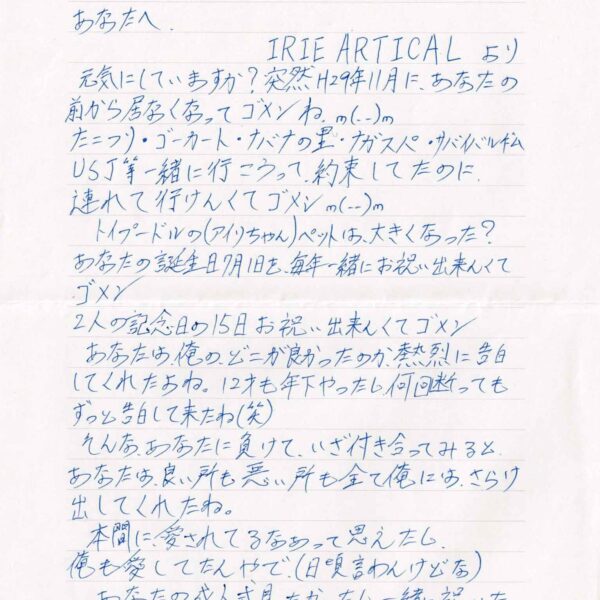 あなたへ.
IRIE ARTICAL より
元気にしていますか?突然H29年11月に、あなたの
前から居なくなってゴメンね.m(--)m
たこつり・ゴーカート・ナバナの里・ナガスパ・サバイバルギム
USJ等一緒に行こうって、約束してたのに、
連れて行けんくてゴメンm(--)m
トイプードルの(アイリちゃん)ペットは、大きくなった?
あなたの誕生日7月1日を、毎年一緒にお祝い出来んくて
ゴメン
2人の記念日の15日お祝い出来んくてゴメン
あなたは、俺の、どこが良かったのか、熱烈に告白
してくれたよね。12才も年下やったし何回断っても
ずっと告白して来たね(笑)
そんな、あなたに負けて、いざ付き合ってみると、
あなたは、良い所も悪い所も全て俺には、さらけ
出してくれたね。
本間に、愛されてるなあって思えたし、
俺も愛してたんやで、(日頃言わんけどな)
あなたの成人式見たかったし一緒に祝いた